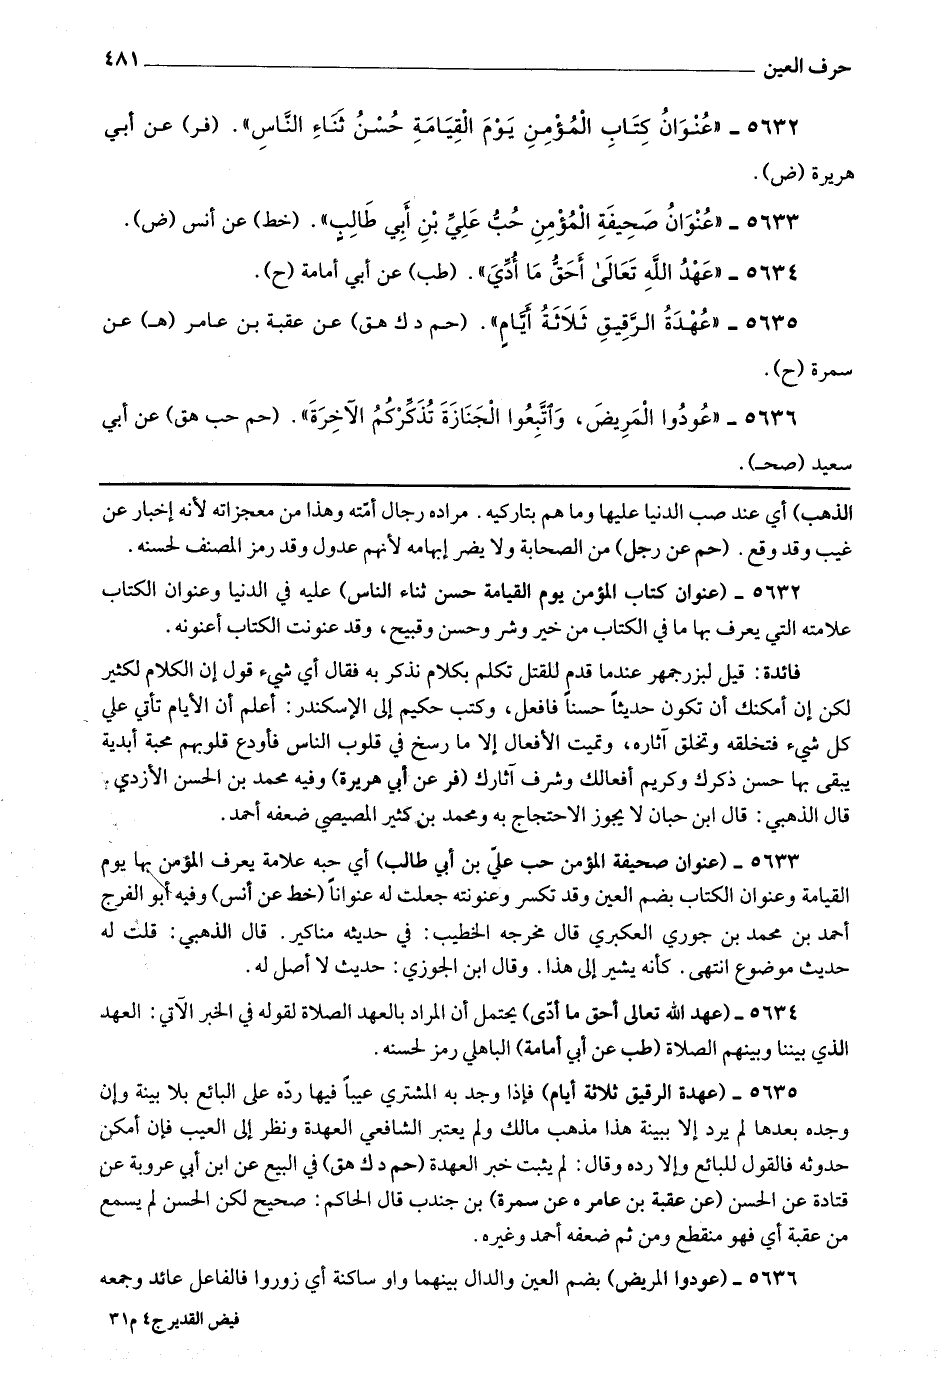 حرف العين ــــــ ٤٨١
٥٦٣٢ ـ «عُنْوَانُ كِتَابِ الْمُؤْمِنِ يَوْمَ الْقِيَامَةِ حُسْنُ ثَنَاءِ النَّاسِ». (فر) عن أبي
هريرة (ض).
٥٦٣٣ ـ «عُنْوَانُ صَحِيفَةِ الْمُؤْمِنِ حُبُّ عَلِيِّ بْنِ أَبِي طَالِبٍ». (خط) عن أنس (ض).
٥٦٣٤ ـ «عَهْدُ اللَّهِ تَعَالَىٰ أَحَقُّ مَا أُدِّيَ». (طب) عن أبي أمامة (ح).
٥٦٣٥ ـ «عُهْدَةُ الرَّقِيقِ ثَلَاثَةُ أَيَّامٍ». (حم د ك هق) عن عقبة بن عامر (هـ) عن
سمرة (ح).
٥٦٣٦ ـ «عُودُوا الْمَرِيضَ، وَٱتَّبِعُوا الْجَنَازَةَ تُذَكِّرْكُمُ الآخِرَةَ». (حم حب هق) عن أبي
سعيد (صحـ).
الذهب) أي عند صب الدنيا عليها وما هم بتاركيه. مراده رجال أمّته وهذا من معجزاته لأنه إخبار عن
غيب وقد وقع. (حم عن رجل) من الصحابة ولا يضر إبهامه لأنهم عدول وقد رمز المصنف لحسنه.
٥٦٣٢ ـ (عنوان كتاب المؤمن يوم القيامة حسن ثناء الناس) عليه في الدنيا وعنوان الكتاب
علامته التي يعرف بها ما في الكتاب من خير وشر وحسن وقبيح، وقد عنونت الكتاب أعنونه.
فائدة: قيل لبزرجمهر عندما قدم للقتل تكلم بكلام نذكر به فقال أي شيء قول إن الكلام لكثير
لكن إن أمكنك أن تكون حديثاً حسناً فافعل، وكتب حكيم إلى الإسكندر: أعلم أن الأيام تأتي علي
كل شيء فتخلقه وتخلق آثاره، وتميت الأفعال إلا ما رسخ في قلوب الناس فأودع قلوبهم محبة أبدية
يبقى بها حسن ذكرك وكريم أفعالك وشرف آثارك (فر عن أبي هريرة) وفيه محمد بن الحسن الأزدي.
قال الذهبي: قال ابن حبان لا يجوز الاحتجاج به ومحمد بن كثير المصيصي ضعفه أحمد.
٥٦٣٣ ـ (عنوان صحيفة المؤمن حب عليّ بن أبي طالب) أي حبه علامة يعرف المؤمن بها يوم
القيامة وعنوان الكتاب بضم العين وقد تكسر وعنونته جعلت له عنواناً (خط عن أنس) وفيه أبو الفرج
أحمد بن محمد بن جوري العكبري قال مخرجه الخطيب: في حديثه مناكير. قال الذهبي: قلت له
حديث موضوع انتهى. كأنه يشير إلى هذا. وقال ابن الجوزي: حديث لا أصل له.
٥٦٣٤ ـ (عهد الله تعالى أحق ما أدّى) يحتمل أن المراد بالعهد الصلاة لقوله في الخبر الآتي: العهد
الذي بيننا وبينهم الصلاة (طب عن أبي أمامة) الباهلي رمز لحسنه.
٥٦٣٥ ـ (عهدة الرقيق ثلاثة أيام) فإذا وجد به المشتري عيباً فيها ردّه على البائع بلا بينة وإن
وجده بعدها لم يرد إلا ببينة هذا مذهب مالك ولم يعتبر الشافعي العهدة ونظر إلى العيب فإن أمكن
حدوثه فالقول للبائع وإلا رده وقال: لم يثبت خبر العهدة (حم د ك هق) في البيع عن ابن أبي عروبة عن
قتادة عن الحسن (عن عقبة بن عامر ه عن سمرة) بن جندب قال الحاكم: صحيح لكن الحسن لم يسمع
من عقبة أي فهو منقطع ومن ثم ضعفه أحمد وغيره.
٥٦٣٦ ـ (عودوا المريض) بضم العين والدال بينهما واو ساكنة أي زوروا فالفاعل عائد وجمعه
فيض القدير ج٤ م٣١